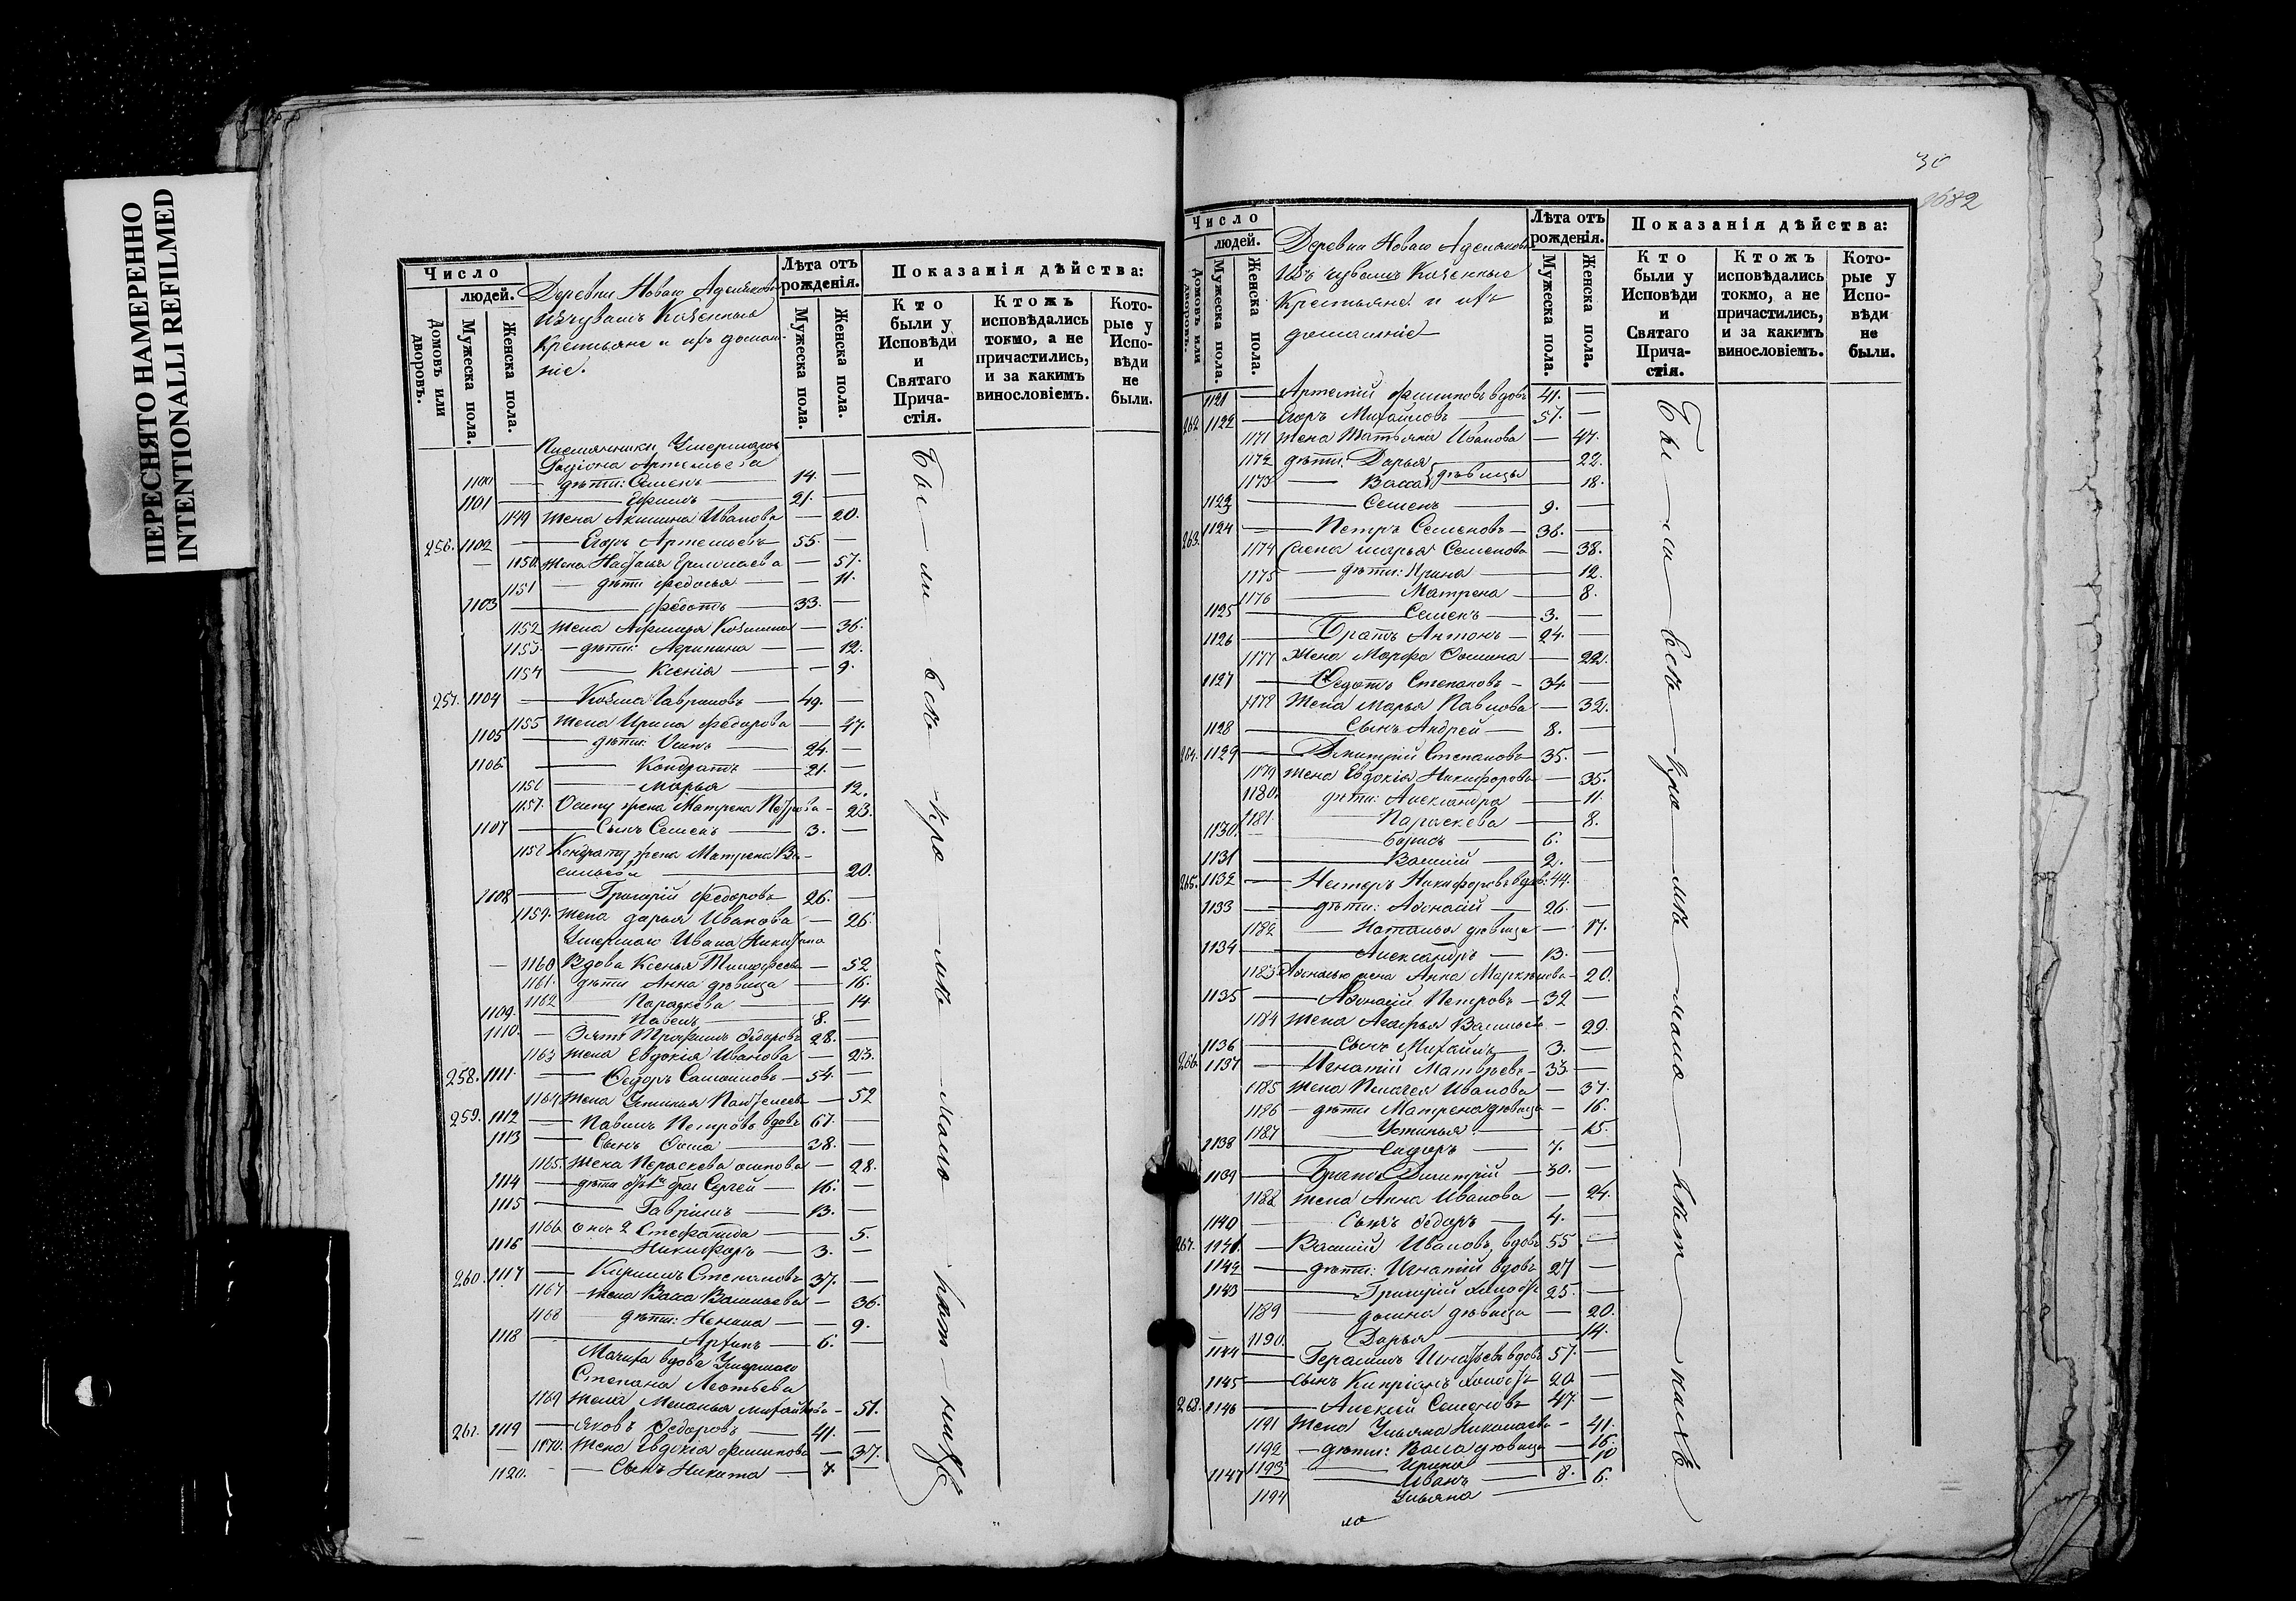 ПЕРЕСНЯТО НАМЕРЕННО
INTENTIONALLI REFILMED
Число
людей.
Домовъ или дворовъ.
Мужеска пола.
Женска пола.
Деревни Новаго
изъ чувашъ Казенные
Крестьяне и ихъ домаш-
ніе.
Лѣта отъ рожденія.
Мужеска пола.
Женска пола.
Показанія дѣйства:
Кто были у Исповѣди и Святаго Прича-стія.
Ктожъ исповѣдались токмо, а не причастились, и за какимъ винословіемъ.
Кото-рые у Испо-вѣди не были.
Племянники Умершаго
Артемьева
1100 дѣти: Семенъ 14.
1101 Ефимъ 21.
1149 жена Акилина Иванова 20.
256. 1102 Егоръ Артемьевъ 55.
1150 жена Наталья 57.
1151 дѣти Федосья 11.
1103 Федотъ 33.
1152 жена Козмина 36.
1153 дѣти: Агрипина 12.
1154 Ксенія 9.
257. 1104 Козма Гавриловъ 49.
1155 жена Ирина Федорова 47.
1105 дѣти: Осипъ 24.
1106 Кондратъ 21.
1156 Марья 12.
1157 Осипу жена Матрена Петрова 23.
1107 Сынъ Семенъ 3.
1158 Кондрату жена Матрена Ва-
сильева 20.
1108 Григорій Федоровъ 26.
1159 жена Дарья Иванова 26.
Умершаго Ивана Никитина
1160 Вдова Ксенья 52
1161 дѣти Анна дѣвица 16.
1162 Параскева 14
1109 Павелъ 8.
1110 Зять Трофимъ Федоровъ 28.
1163 жена Евдокія Иванова 23.
258. 1111 Федоръ Самойловъ 54.
1164 жена Устинья 52
259. 1112 Петровъ вдовъ 67.
1113 Сынъ 38.
1165 жена Параскева Осипова 28.
1114 дѣти Сергей 16.
1115 Гавріилъ 13.
1166 Стефанида 5.
1116 Никифоръ 3.
260. 1117 Кирилъ Степановъ 37.
1167 жена Васса Васильева 36.
1168 дѣти: Ненила 9.
1118 Архипъ 6.
Мачиха вдова Умершаго
Степана Леонтьева
1169 жена Меланья Михайлова 51.
261. 1119 Яковъ Федоровъ 41.
1170 жена Евдокія Филипова 37.
1120 Сынъ Никита 7.
Бы - ли - всѣ - кро - мѣ - мало - лѣт - нихъ
30
Число
людей.
Домовъ или дворовъ.
Мужеска пола.
Женска пола.
Деревни Новаго
Изъ чувашъ Казенные
Крестьяне и ихъ
домашніе
Лѣта отъ рожденія.
Мужеска пола.
Женска пола.
Показанія дѣйства:
Кто были у Исповѣди и Святаго Прича-стія.
Ктожъ исповѣдались токмо, а не причастились, и за какимъ винословіемъ.
Кото-рые у Испо-вѣди не были.
1121 Артемій Филиповъ вдовъ 41.
262 1122 Егоръ Михайловъ 57.
1171 жена Татьяна Иванова 47.
1172 дѣти: Дарья 22.
1173 Васса дѣвицы 18.
1123 Семенъ 9.
263. 1124 Петръ Семеновъ 36.
1174 жена Марья Семенова 38.
1175 дѣти: Ирина 12.
1176 Матрена 8.
1125 Семенъ 3.
1126 Братъ Антонъ 24.
1177 Жена Марфа 22.
1127 Федотъ Степановъ 34
1178 Жена Марья Павлова 32.
1128 Сынъ Андрей 8.
264. 1129 Дмитрій Степановъ 35.
1179 жена Евдокія Никифорова 35.
1180 дѣти: Александра 11.
1181 Параскева 8.
1130 Борисъ 6.
1131 Василій 2.
265. 1132 Нестеръ Никифоровъ вдов. 44.
1133 дѣти: Афонасій 26.
1182 Наталья дѣвица 17.
1134 Александръ 13.
1183 Афонасью жена Анна 20.
1135 Афонасій Петровъ 32
1184 жена Агафья Васильева 29.
1136 Сынъ Михаилъ 3.
266. 1137 Игнатій Матвѣевъ 33
1185 жена Пелагея Иванова 37.
1186 дѣти Матрена дѣвица 16.
1187 Устинья 15.
1138 Сидоръ 7.
1139 Братъ Дмитрій 30.
1188 жена Анна Иванова 24.
1140 Сынъ Федоръ 4.
267. 1141 Василій Ивановъ вдовъ 55
1142 дѣти: Игнатій вдовъ 27
1143 Григорій 25.
1189 дѣвица 20.
1190 Дарья 14.
1144 Герасимъ Игнатьевъ вдовъ 57.
1145 сынъ Кипріанъ 20
268. 1146 Алексей Семеновъ 47.
1191 жена Ульяна Николаева 41.
1192 дѣти: Васса дѣвица 16.
1193 Ирина 10
1147 Иванъ 8.
1194 Ульяна 6.
Бы - ли - всѣ - кро - мѣ - мало - лѣт